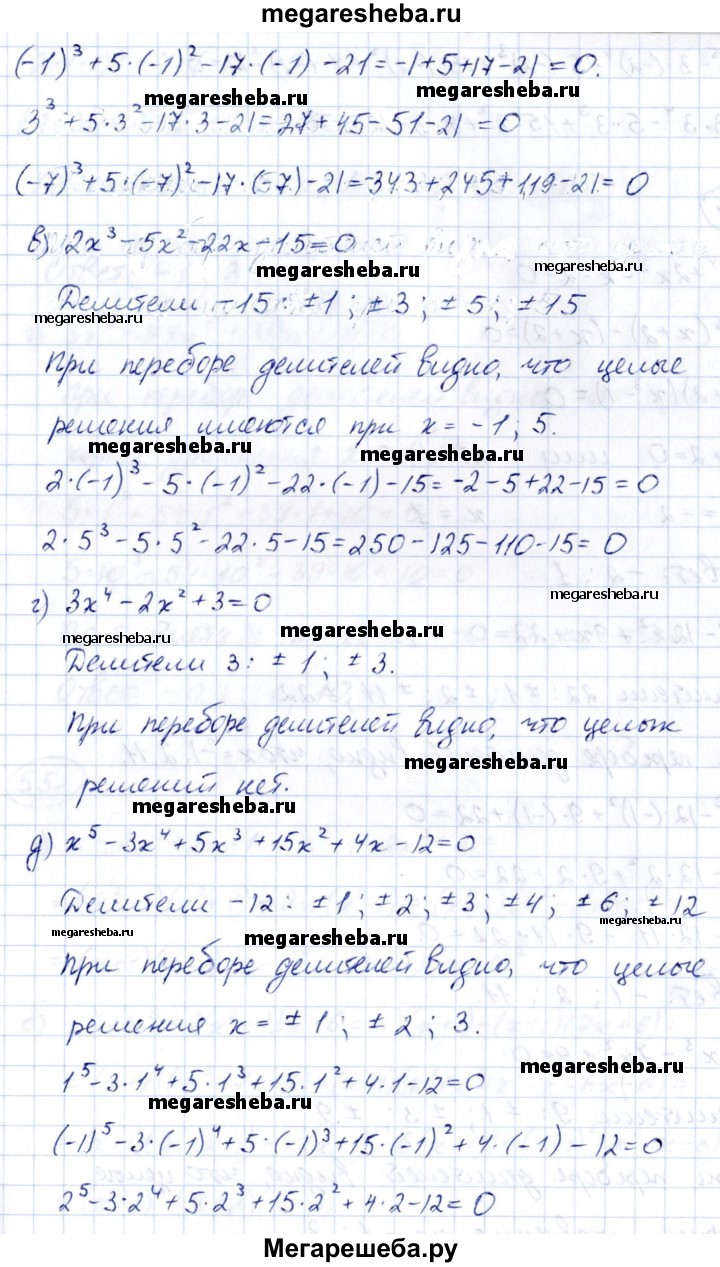 megaresheba.ru
(-1)³ + 5·(-1)² - 17·(-1) - 21 = -1 + 5 + 17 - 21 = 0.
megaresheba.ru megaresheba.ru
3³ + 5·3² - 17·3 - 21 = 27 + 45 - 51 - 21 = 0
(-7)³ + 5·(-7)² - 17·(-7) - 21 = -343 + 245 + 119 - 21 = 0
в) 2x³ - 5x² - 22x - 15 = 0
megaresheba.ru megaresheba.ru
Делители -15: ±1; ±3; ±5; ±15
megaresheba.ru
При переборе делителей видно, что целые
решения имеются при x = -1; 5.
megaresheba.ru megaresheba.ru
2·(-1)³ - 5·(-1)² - 22·(-1) - 15 = -2 - 5 + 22 - 15 = 0
2·5³ - 5·5² - 22·5 - 15 = 250 - 125 - 110 - 15 = 0
г) 3x⁴ - 2x² + 3 = 0
megaresheba.ru
Делители 3: ±1; ±3.
При переборе делителей видно, что целых
megaresheba.ru
решений нет.
megaresheba.ru
д) x⁵ - 3x⁴ + 5x³ + 15x² + 4x - 12 = 0
Делители -12: ±1; ±2; ±3; ±4; ±6; ±12
megaresheba.ru megaresheba.ru megaresheba.ru
При переборе делителей видно, что целые
решения x = ±1; ±2; 3.
megaresheba.ru
1⁵ - 3·1⁴ + 5·1³ + 15·1² + 4·1 - 12 = 0
megaresheba.ru
(-1)⁵ - 3·(-1)⁴ + 5·(-1)³ + 15·(-1)² + 4·(-1) - 12 = 0
2⁵ - 3·2⁴ + 5·2³ + 15·2² + 4·2 - 12 = 0
Мегарешеба.ру